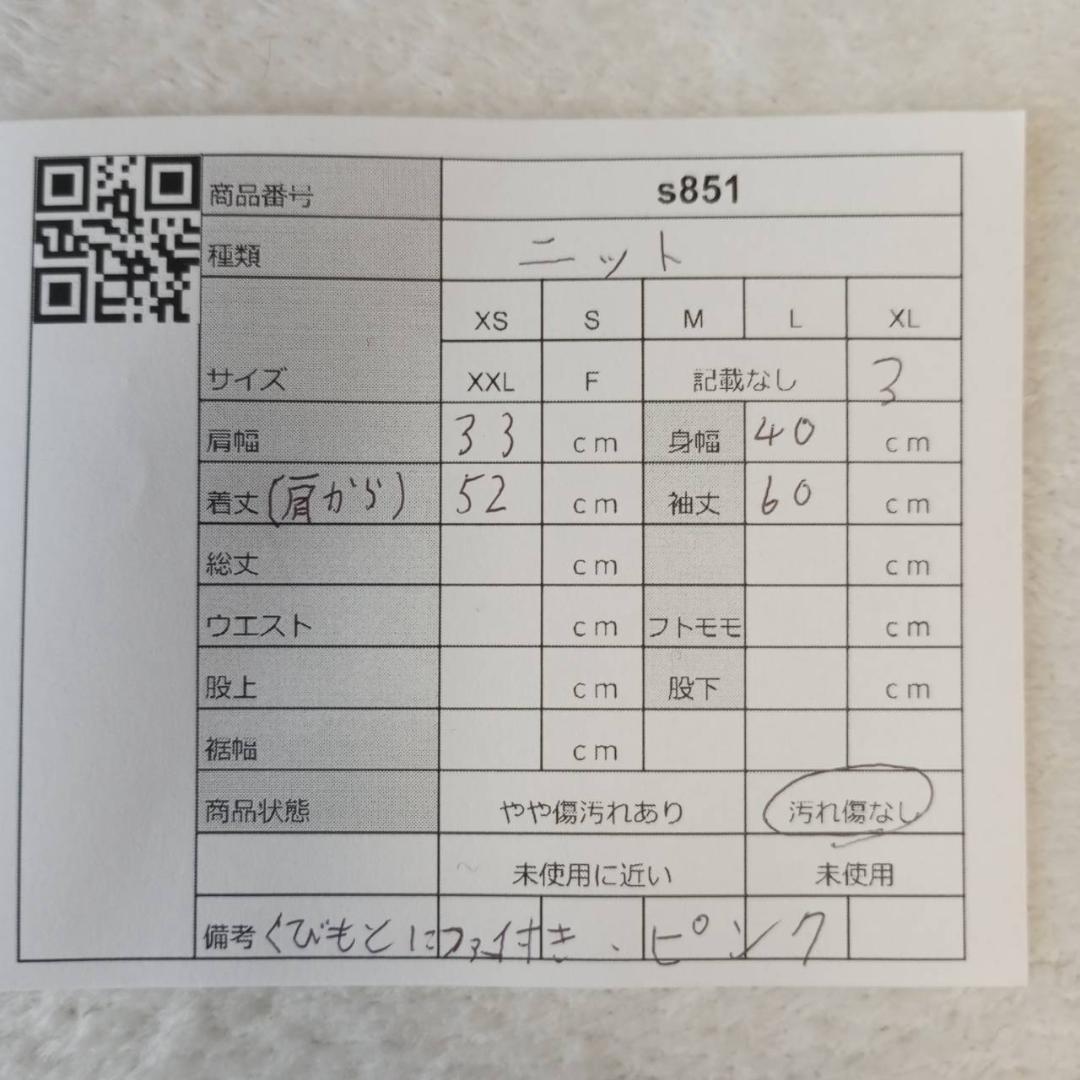 商品番号 s851
種類 ニット
XS S M L XL
サイズ XXL F 記載なし 3
肩幅 33 cm 身幅 40 cm
着丈(肩から) 52 cm 袖丈 60 cm
総丈 cm cm
ウエスト cm フトモモ cm
股上 cm 股下 cm
裾幅 cm
商品状態 やや傷汚れあり 汚れ傷なし
未使用に近い 未使用
備考 くびもとにファー付き、ピンク